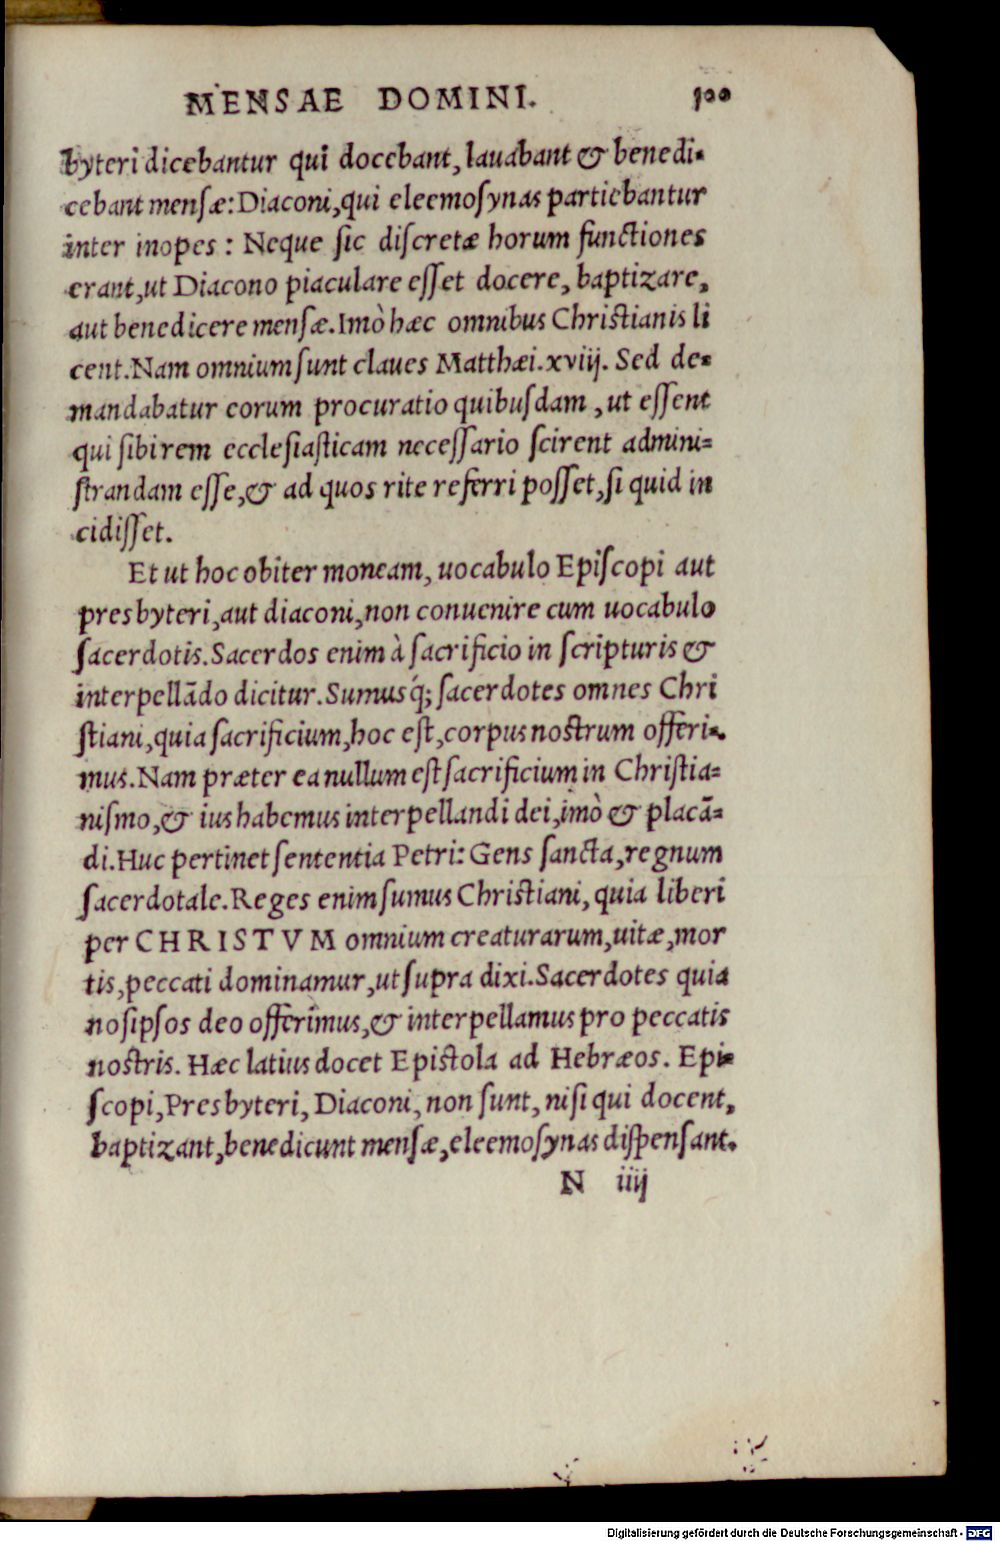 MENSAE DOMINI. 100
byteri dicebantur qui docebant, lauabant & benedi-
cebant mensæ: Diaconi, qui eleemosynas partiebantur
inter inopes: Neque sic discretæ horum functiones
erant, ut Diacono piaculare esset docere, baptizare,
aut benedicere mensæ. Imò hæc omnibus Christianis li
cent. Nam omnium sunt claues Matthæi. xviij. Sed de-
mandabatur eorum procuratio quibusdam, ut essent
qui sibi rem ecclesiasticam necessario scirent admini-
strandam esse, & ad quos rite referri posset, si quid in
cidisset.
Et ut hoc obiter moneam, uocabulo Episcopi aut
presbyteri, aut diaconi, non conuenire cum uocabulo
sacerdotis. Sacerdos enim à sacrificio in scripturis &
interpellādo dicitur. Sumus q́; sacerdotes omnes Chri
stiani, quia sacrificium, hoc est, corpus nostrum offeri-
mus. Nam præter ea nullum est sacrificium in Christia-
nismo, & ius habemus interpellandi dei, imò & placā-
di. Huc pertinet sententia Petri: Gens sancta, regnum
sacerdotale. Reges enim sumus Christiani, quia liberi
per CHRISTVM omnium creaturarum, uitæ, mor
tis, peccati dominamur, ut supra dixi. Sacerdotes quia
nos ipsos deo offerimus, & interpellamus pro peccatis
nostris. Hæc latius docet Epistola ad Hebræos. Epi-
scopi, Presbyteri, Diaconi, non sunt, nisi qui docent,
baptizant, benedicunt mensæ, eleemosynas dispensant.
N iiij
Digitalisierung gefördert durch die Deutsche Forschungsgemeinschaft - DFG